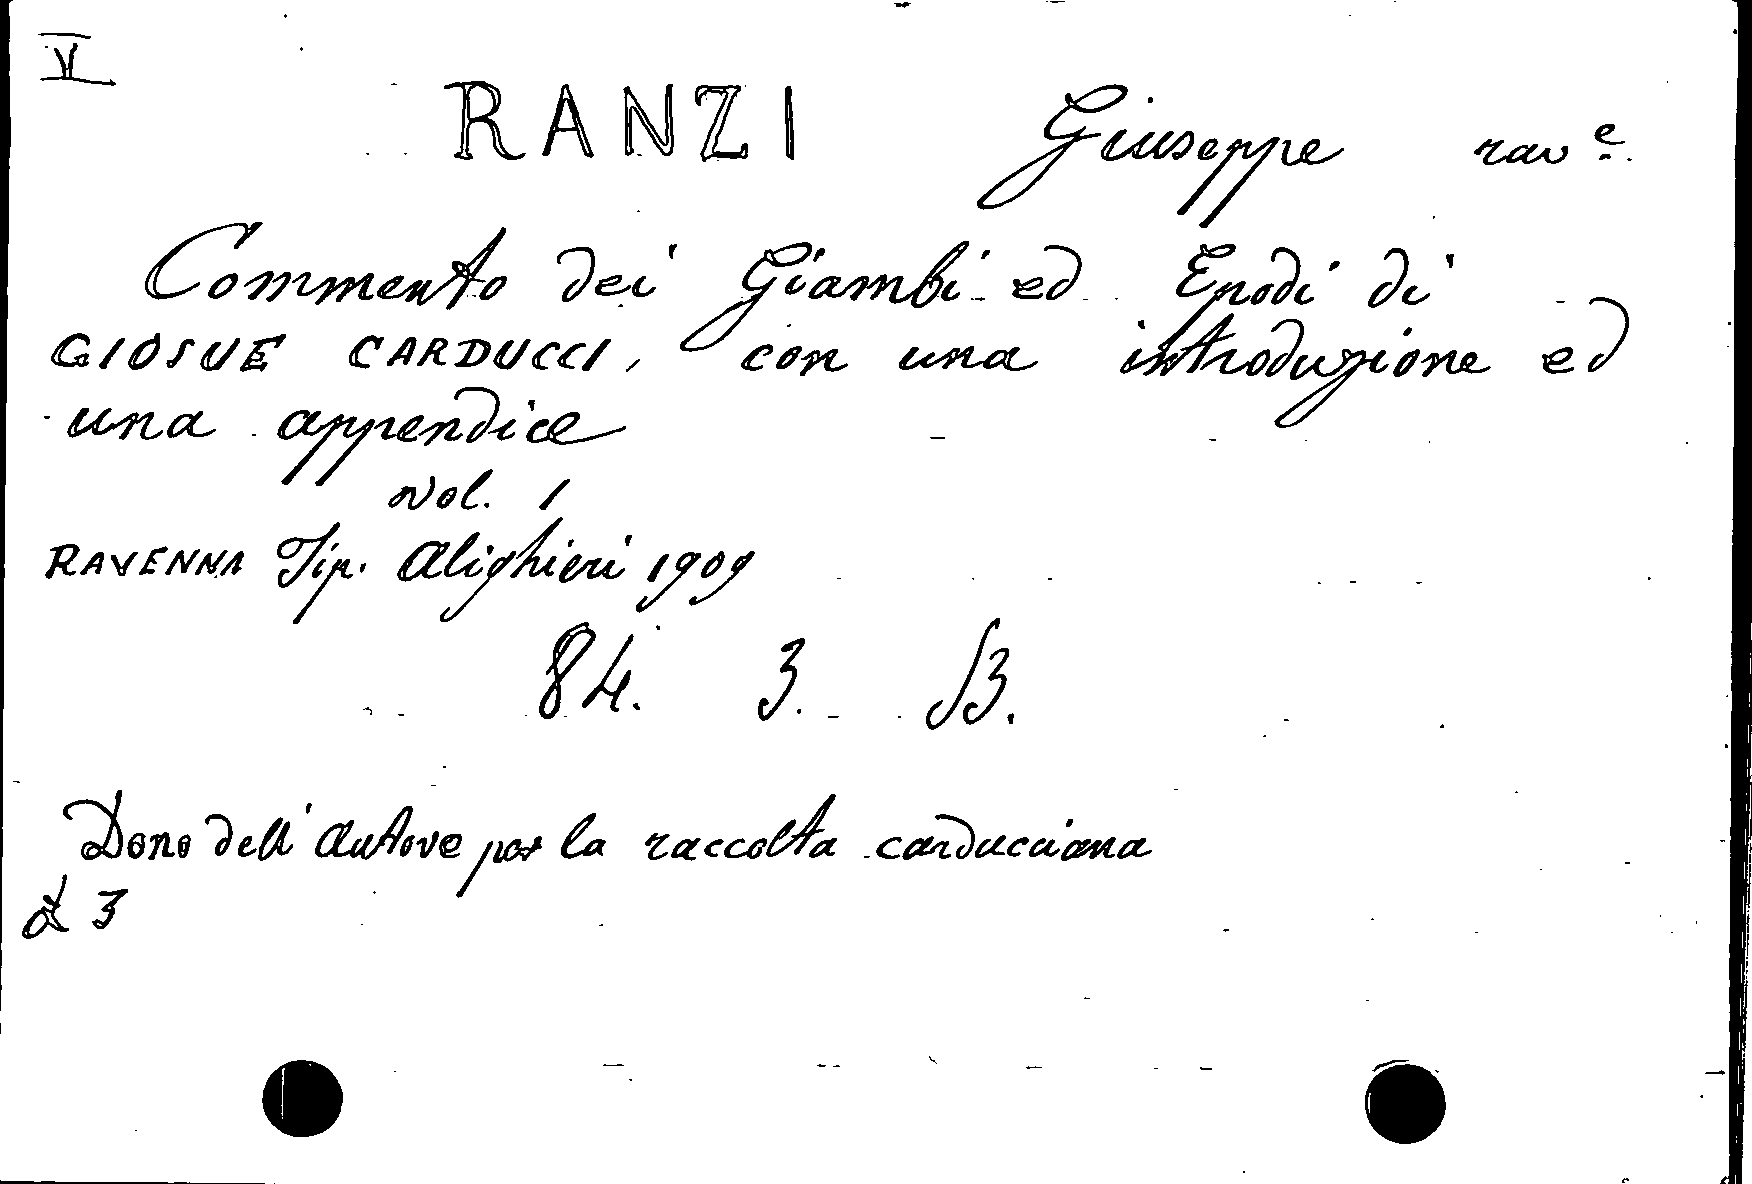 V
RANZI Giuseppe rav.e
Commento dei Giambi ed Epodi di
GIOSUE CARDUCCI, con una introduzione ed
una appendice
Vol. 1
RAVENNA Tip. Alighieri 1909
84. 3. S3.
Dono dell'Autore per la raccolta carducciana
£ 3